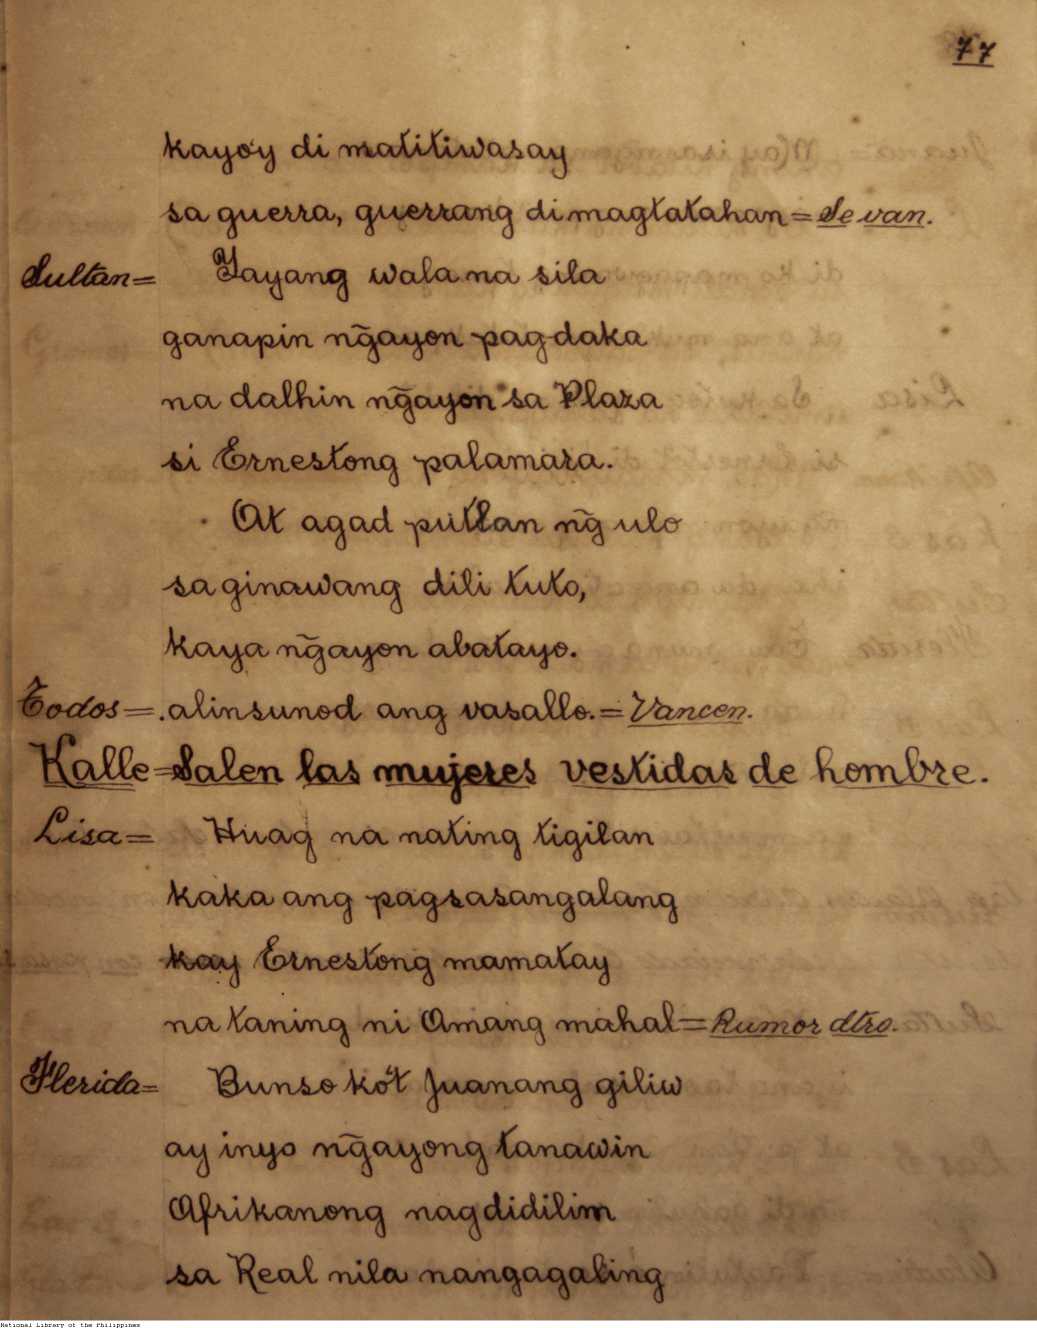 77
kayo'y di matitiwasay
sa guerra, guerrang di magtatahan = Se van.
Sultan = Yayang wala na sila
ganapin n̄gayon pag-daka
na dalhin n̄gayon sa Plaza
si Ernestong palamara.
At agad putlan n̄g ulo
sa ginawang dili tuto,
kaya n̄gayon abatayo.
Todos = . alinsunod ang vasallo. = Vancen.
Kalle = Salen las mujeres vestidas de hombre.
Lisa = Huag na nating tigilan
kaka ang pagsasangalang
kay Ernestong mamatay
na taning ni Amang mahal = Rumor dtro.
Flerida = Bunso ko't Juanang giliw
ay inyo n̄gayong tanawin
Afrikanong nagdidilim
sa Real nila nangagaling
National Library of the Philippines